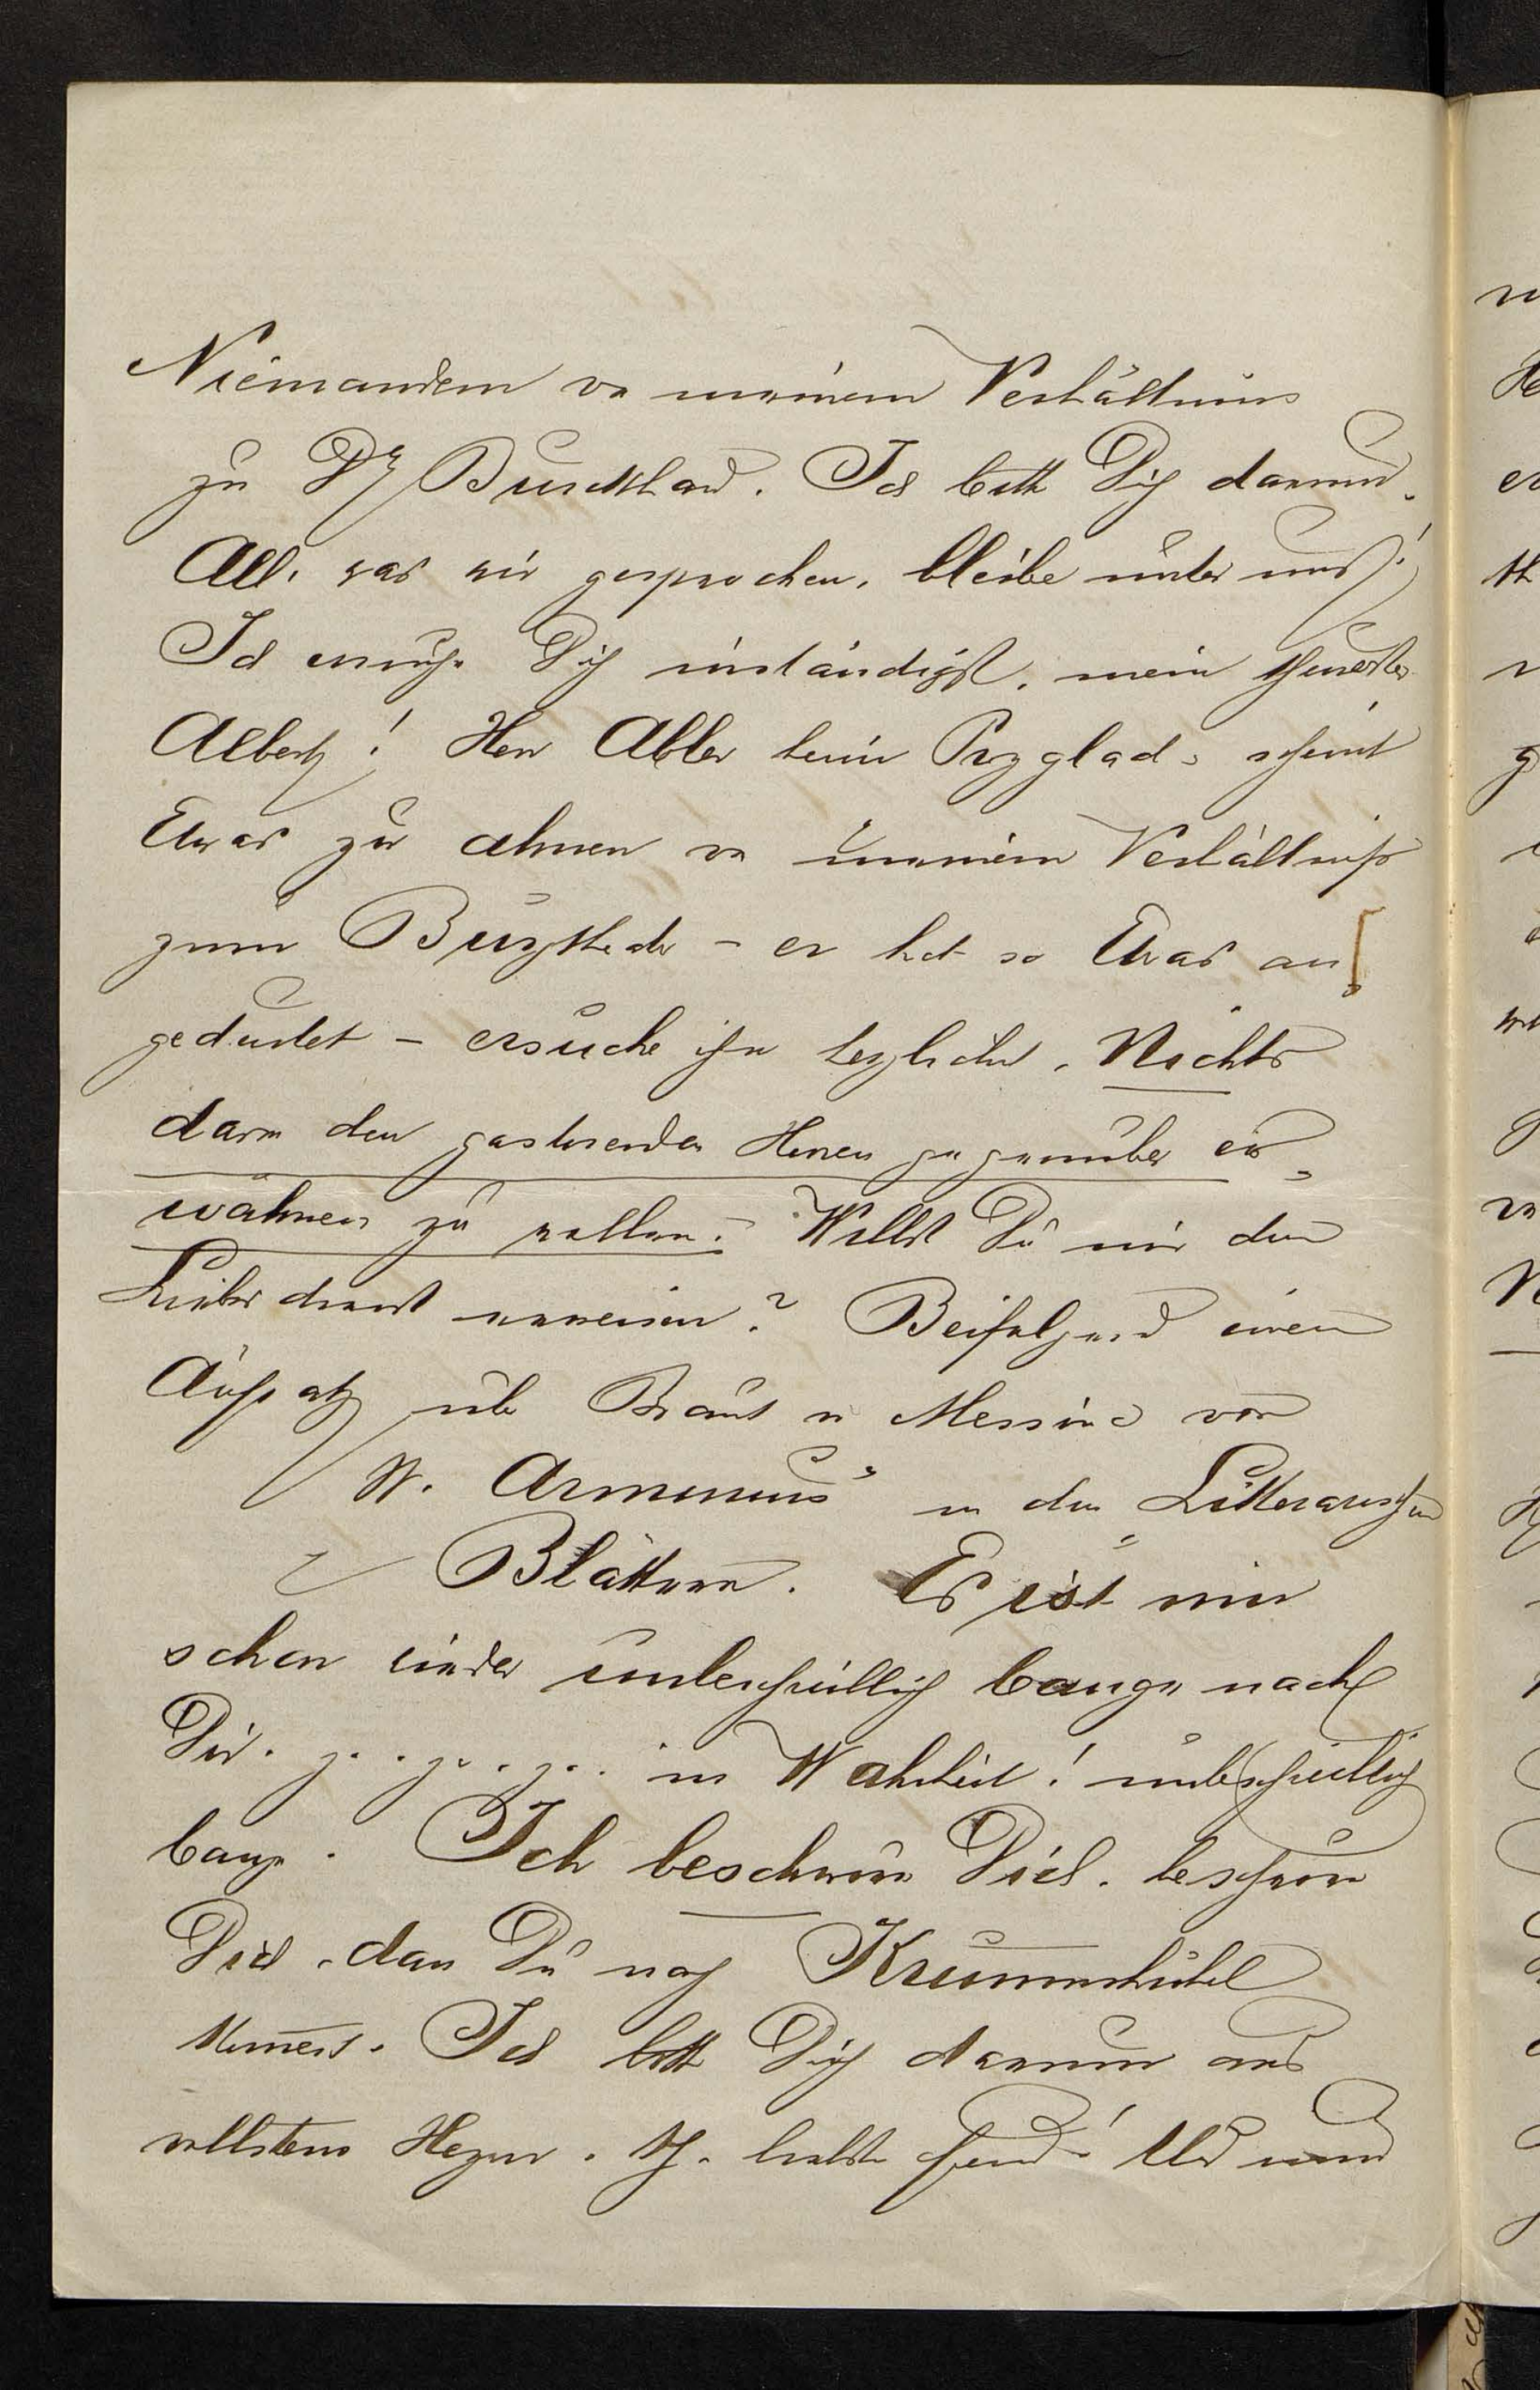 Niemandem vn meinem Verhältniss
zu Dr Burckhard. Ich bitte Dich darum.
All. was wir gesprochen, bleibe unter uns!
Ich ersuche Dich inständigst, mein theurster
Albert! Herr Adler beim scheint
Etwas zu ahnen vn meinem Verhältniß
zum Burgtheater – er hat so Etwas an
gedeutet – ersuche ihn herzlichst, Nichts
davon den gastirenden Herren gegenüber er
wähnen zu wollen. Willst Du mir den
Liebesdienst erweisen? Beifolgend einen
Aufsatz über Braut v Messina von
W. Arminius in den Litterarischen
Blättern. Es ist mir
schon wieder unbeschreiblich bange nach
Dir. in Wahrheit! unbeschreiblich
bange. Ich beschwöre Dich, beschwöre
Dich, dass Du nach Krummhübel
kommest. Ich bitte Dich darum aus
vollstem Herzen. Und wenn